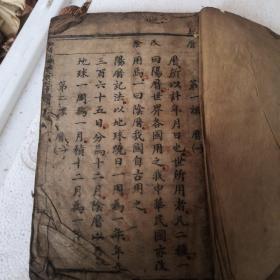 第一課　曆(一)
曆所以計年月日也世所用者凡二種一
曰陽曆世界各國用之我中華民國亦改
用焉一曰陰曆我國自古用之
陽曆記法以地球繞日一周爲一年年
三百六十五日分爲十二月陰曆以
地球一周爲一月積十二月爲一年
第二課　曆(二)